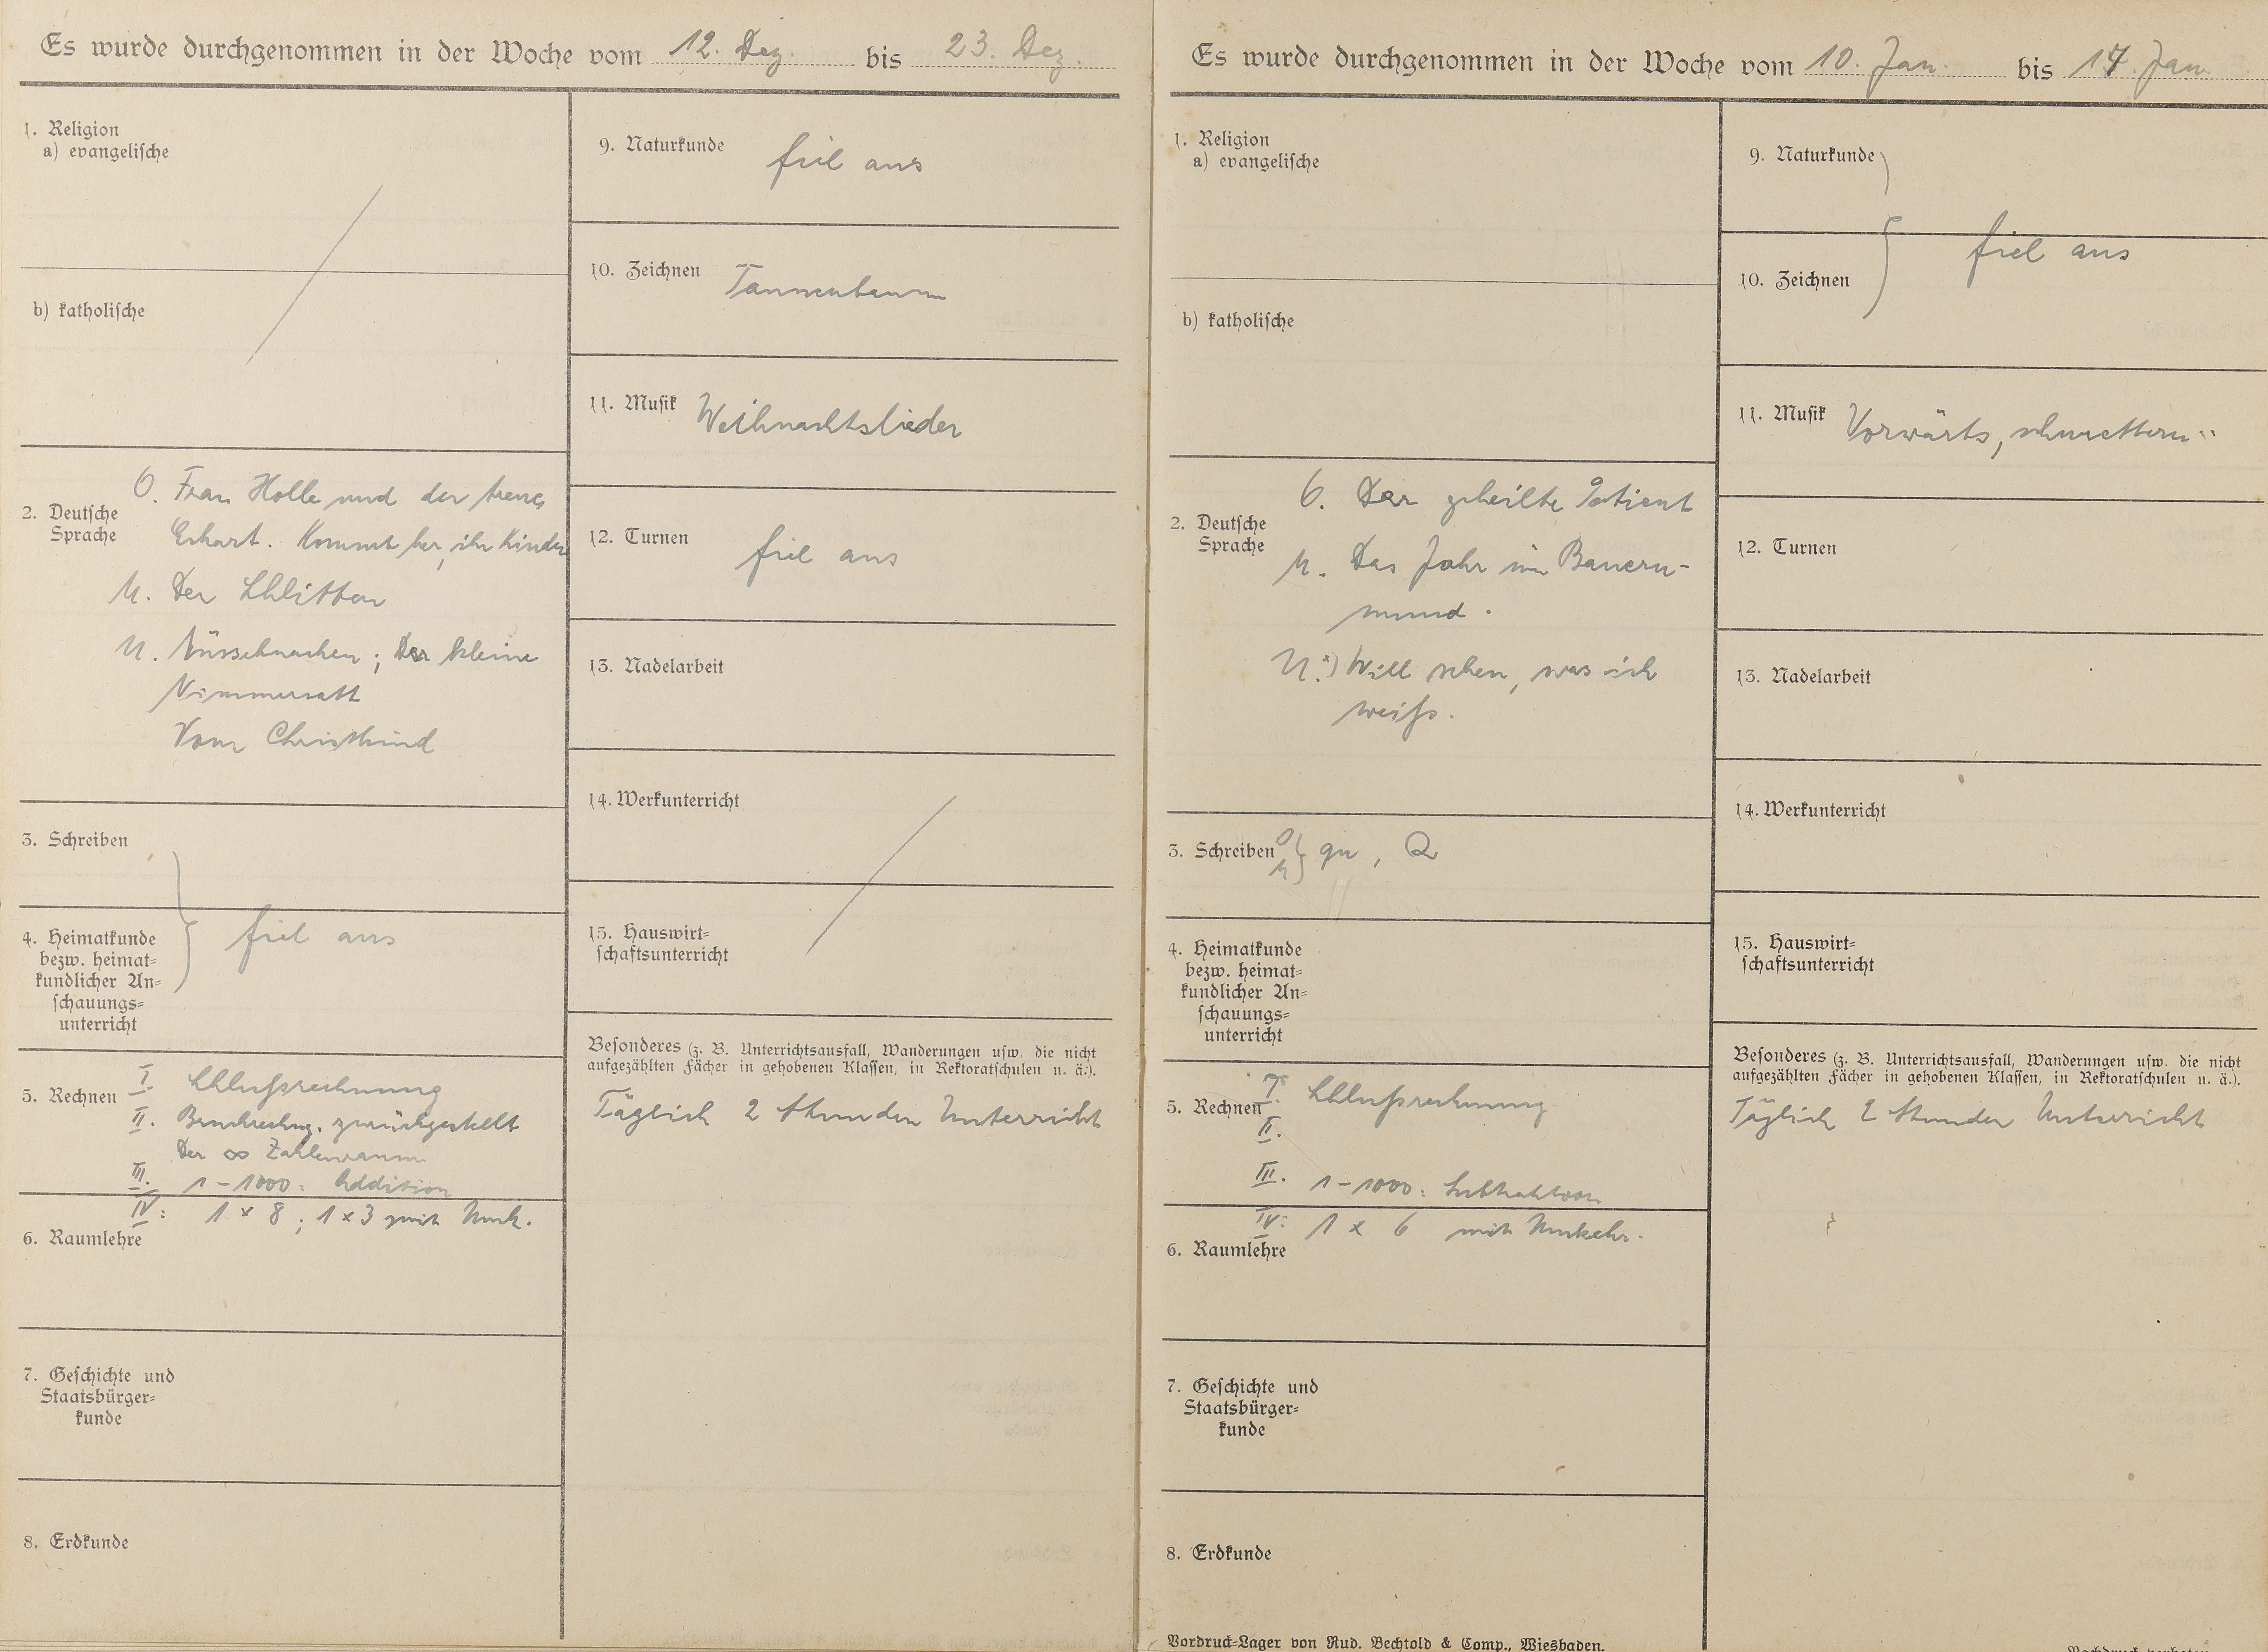 Es wurde durchgenommen in der Woche vom 12. Dez. bis 23. Dez.
1. Religion
a) evangelische
b) katholische
2. Deutsche
Sprache
O. Frau Holle und der treue
Eckart. Kommt her, ihr Kinder
M. Der Schlitten
U. Nüsseknacken; Der kleine
Nimmersatt
Vom Christkind
3. Schreiben
4. Heimatkunde
bezw. heimat-
kundlicher An-
schauungs-
unterricht
fiel aus
5. Rechnen
I. Schlußrechnung
II. Bruchrechng. zurückgestellt
Der ∞ Zahlenraum
III. 1-1000: Addition
IV: 1 x 8 ; 1 x 3 mit Umk.
6. Raumlehre
7. Geschichte und
Staatsbürger-
kunde
8. Erdkunde
9. Naturkunde fiel aus
10. Zeichnen Tannenbaum
11. Musik Weihnachtslieder
12. Turnen fiel aus
13. Nadelarbeit
14. Werkunterricht
15. Hauswirt-
schaftsunterricht
Besonderes (z. B. Unterrichtsausfall, Wanderungen usw. die nicht
aufgezählten Fächer in gehobenen Klassen, in Rektoratschulen u. ä.).
Täglich 2 Stunden Unterricht
Es wurde durchgenommen in der Woche vom 10. Jan. bis 14. Jan.
1. Religion
a) evangelische
b) katholische
2. Deutsche
Sprache
O. Der geheilte Patient
M. Das Jahr im Bauern-
mund.
U. Will sehen, was ich
weiß.
3. Schreiben O M } qu, Q
4. Heimatkunde
bezw. heimat-
kundlicher An-
schauungs-
unterricht
5. Rechnen
I. Schlußrechnung
II.
III. 1-1000: Subtraktion
IV: 1 x 6 mit Umkehr.
6. Raumlehre
7. Geschichte und
Staatsbürger-
kunde
8. Erdkunde
9. Naturkunde
10. Zeichnen
fiel aus
11. Musik Vorwärts, schmettern"
12. Turnen
13. Nadelarbeit
14. Werkunterricht
15. Hauswirt-
schaftsunterricht
Besonderes (z. B. Unterrichtsausfall, Wanderungen usw. die nicht
aufgezählten Fächer in gehobenen Klassen, in Rektoratschulen u. ä.).
Täglich 2 Stunden Unterricht
Vordruck-Lager von Rud. Bechtold & Comp., Wiesbaden.